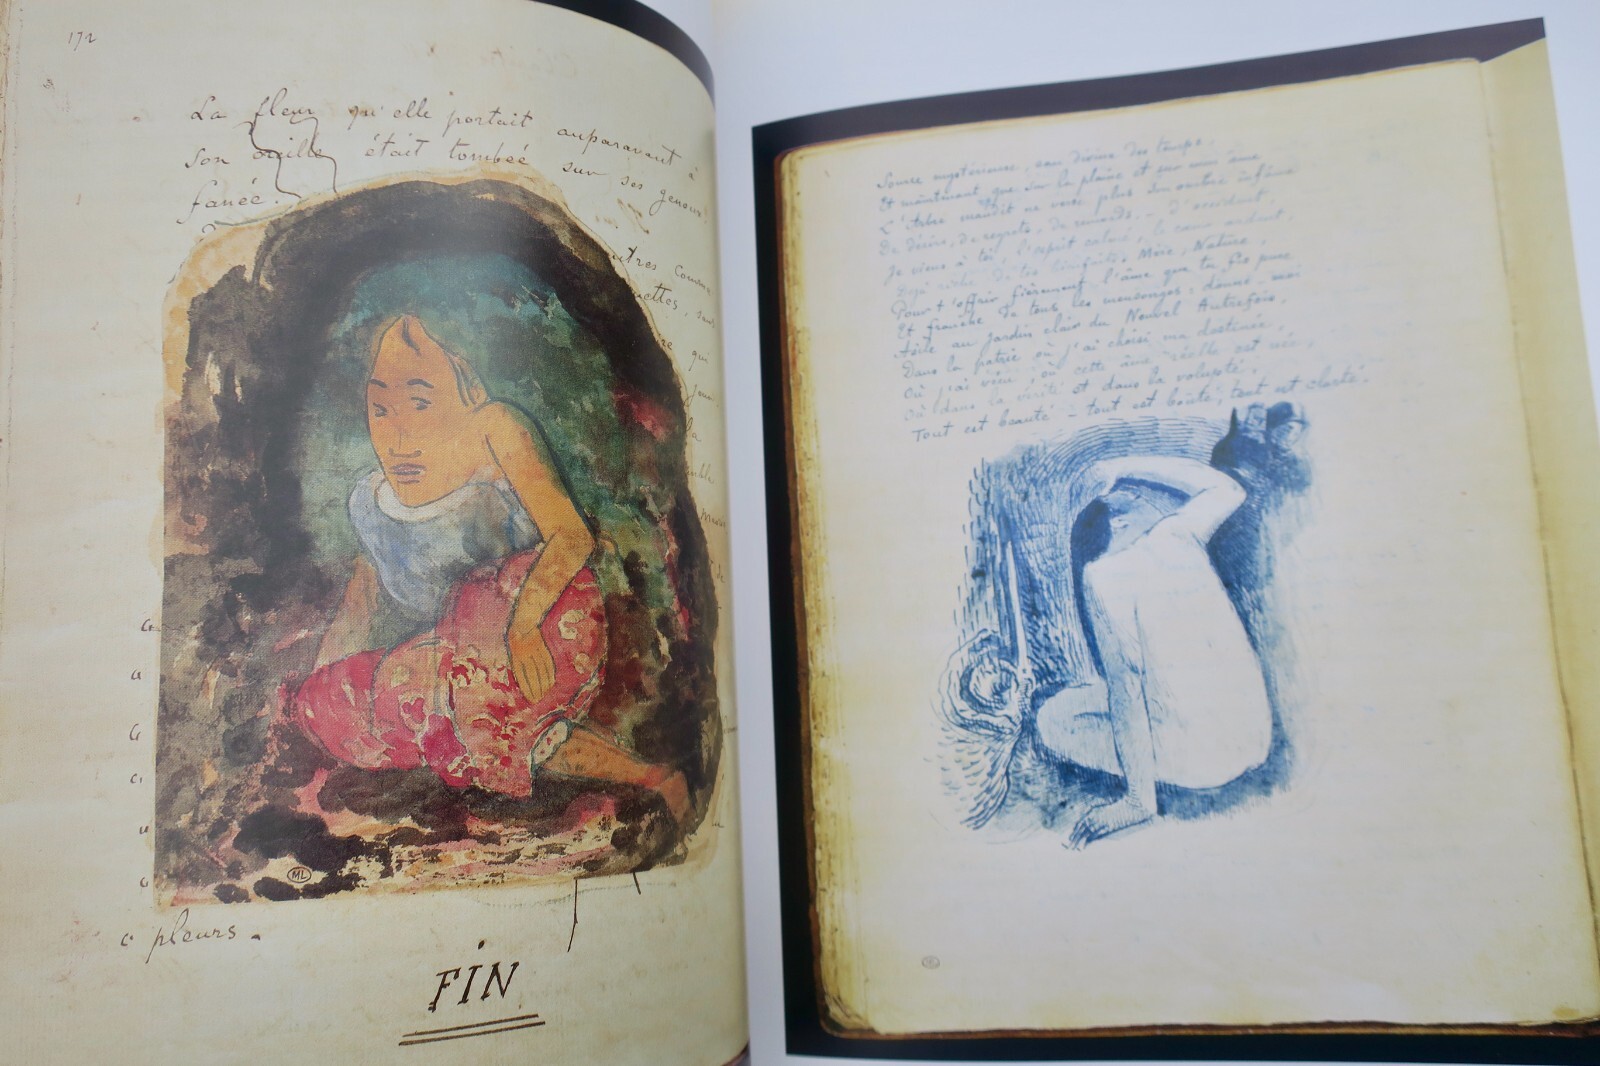 172
La fleur qu'elle portait auparavant à
son oreille était tombée sur ses genoux
fanée.
autres comme
uettes, sans
re qui
la
c pleurs.
FIN
ML
Source mystérieuse, eau divine des temps.
Et maintenant que sur la plaine et sur mon âme
L'Arbre maudit ne verse plus son ombre infâme
De désirs, de regrets, de remords, – d'occident,
Je viens à toi, l'esprit calmé, le cœur ardent,
Déjà riche de tes bienfaits, Mère, Nature,
Pour t'offrir fièrement l'âme que tu fis pure
Et franche de tous les mensonges: donne-moi
Asile au jardin clair du Nouvel Autrefois,
Dans la patrie où j'ai choisi ma destinée,
Où j'ai vécu, où cette âme réelle est née,
Où dans la vérité et dans la volupté,
Tout est beauté – tout est bonté, tout est clarté.